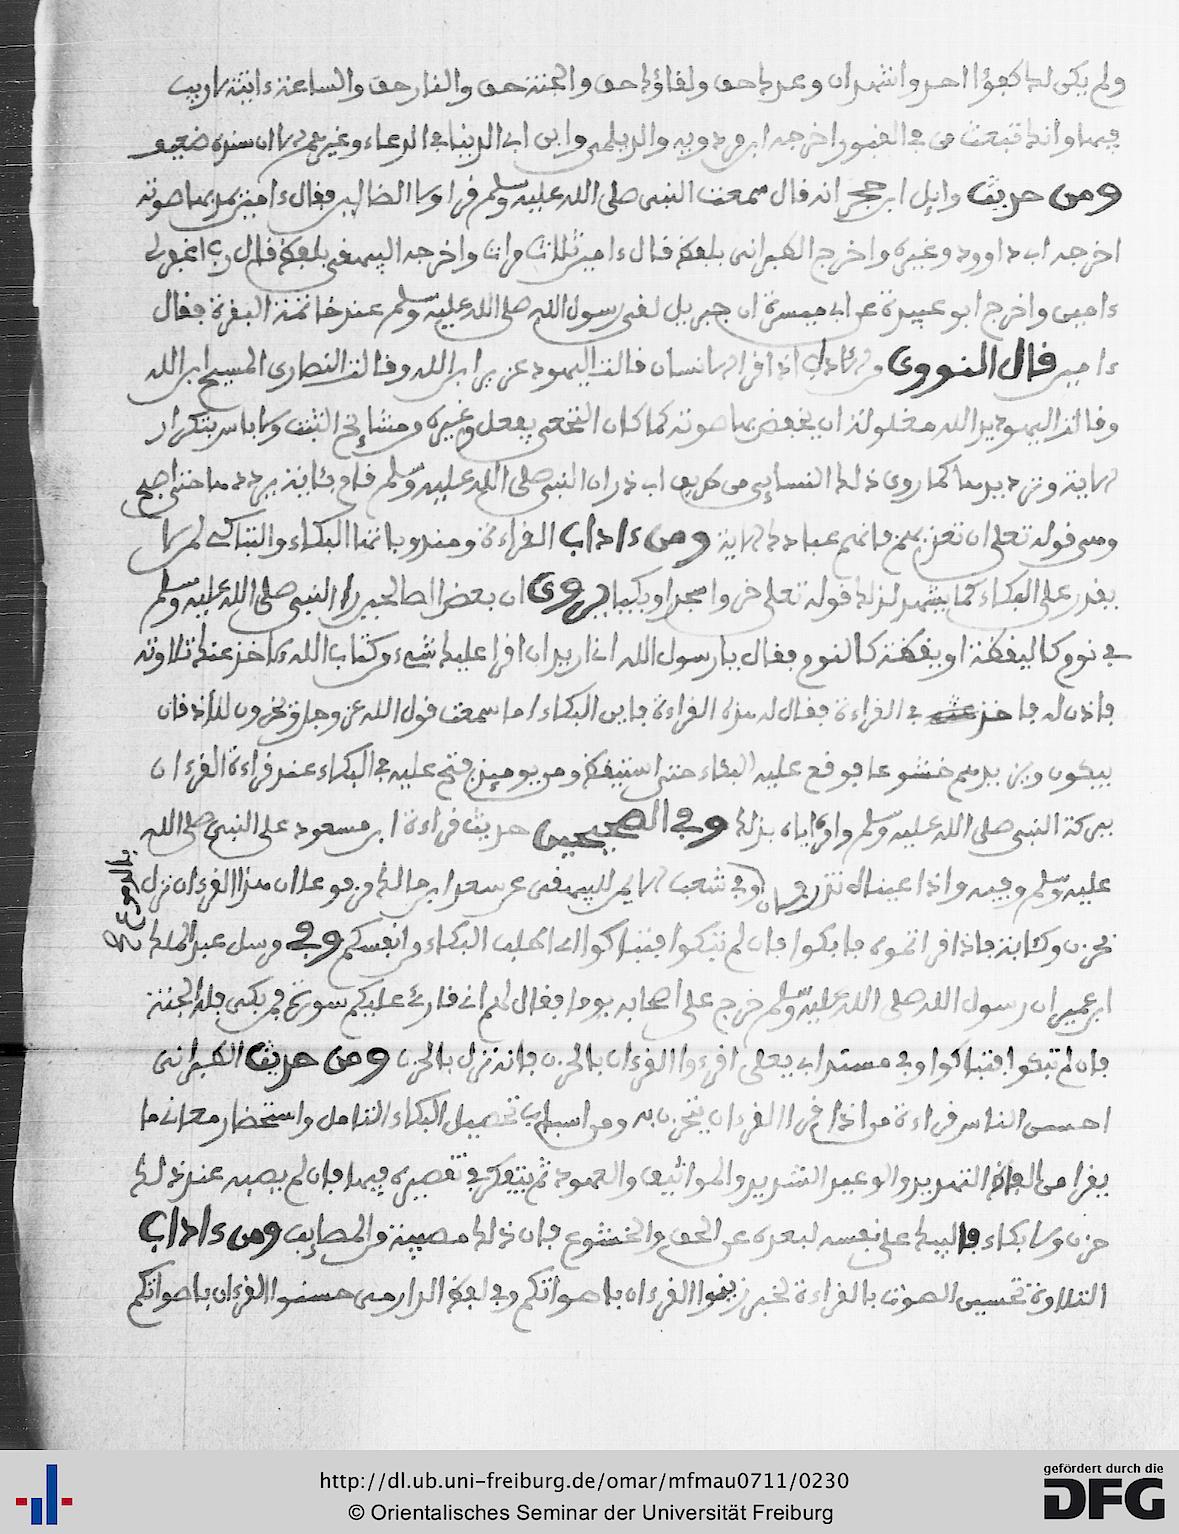 ولم يكن له كفؤا احد واشهد ان وعدك حق ولقاؤك حق والجنة حق والنار حق والساعة ءاتية لا ريب
فيها وانك تبعث من في القبور اخرجه ابن مردويه والديلمي وابن ابي الدنيا في الدعاء وغيرهم الا ان سنده ضعيف
ومن حديث وايل ابن حجر انه قال سمعت النبي صلى الله عليه وسلم قرا ولا الضالين فقال ءامين يمد بها صوته
اخرجه اب داوود وغيره واخرج الطبراني بلفظ قال ءامين ثلاث مرات واخرجه البيهقي بلفظ قال رب اغفر لي
ءامين واخرج ابو عبيدة عن اب ميسرة ان جبريل لقن رسول الله صلى الله عليه وسلم عند خاتمة البقرة فقال
ءامين قال النووي ومن الاداب اذا قرا الانسان قالت اليهود عزير ابن الله وقالت النصارى المسيح ابن الله
وقالت اليهود يد الله مغلولة ان يخفض بها صوته كما كان النخعي يفعل وغيره ومشايخ الثبت ولا باس بتكرار
الاية وترديدها كما روى ذلك النسايي من طريق اب ذر ان النبي صلى الله عليه وسلم قام بئاية يرددها حتى اصبح
وهي قوله تعلى ان تعذبهم فانهم عبادك الاية ومن ءاداب القراءة ومندوباتها البكاء والتباكي لمن لا
يقدر على البكاء كما يشهد لذلك قوله تعلى خروا سجدا وبكيا يروى ان بعض الصالحين راى النبي صلى الله عليه وسلم
في نوم كاليقظة او يقظة كالنوم فقال يا رسول الله اني اريد ان اقرا عليك شيء وكتاب الله لاخذ عنك تلاوته
فاذن له فاخذ في القراءة فقال له هذه القراءة فاين البكاء اما سمعت قول الله عز وجل ويخرون للاذقان
يبكون ويزيدهم خشوعا فوقع عليه البكاء حتى استيقظ ومن يوميذ فتح عليه في البكاء عند قراءة القرءان
ببركة النبي صلى الله عليه وسلم وامره اياه بذلك وفي الصحيحين حديث قراءة ابن مسعود على النبي صلى الله
عليه وسلم وفيه واذا عيناه تذرفان وفي شعب الايمان للبيهقي عن سعد ابن مالك مرفوعا ان هذا القرءان نزل
بالدموع صح
بحزن وكئابة فاذا قراتموه فابكوا فان لم تبكوا فتباكوا اي اطلب البكاء من انفسكم وفي مرسل عبد الملك
ابن عمير ان رسول الله صلى الله عليه وسلم خرج على اصحابه يوما فقال لهم اني قارئ عليكم سورة فمن بكى فله الجنة
فان لم تبكوا فتباكوا وفي مسند اب يعلى اقرءوا القرءان بالحزن فانه نزل بالحزن ومن حديث الطبراني
احسن الناس قراءة من اذا قرا القرءان يتحزن به ومن اسباب تحصيل البكاء التامل واستحضار معاني ما
يقرا من الفاظ التهديد والوعيد الشديد والمواثيق والعهود ثم يتفكر في تقصيره فيها فان لم يصبه عند ذلك
حزن ولا بكاء فاليبك على نفسه لبعده عن الحق والخشوع فان ذلك مصيبة من المصايب ومن ءاداب
التلاوة تحسين الصوت بالقراءة لخبر زينوا القرءان باصواتكم وفي لفظ الدارمي حسنوا القرءان باصواتكم
http://dl.ub.uni-freiburg.de/omar/mfmau0711/0230
© Orientalisches Seminar der Universität Freiburg
gefördert durch die
DFG